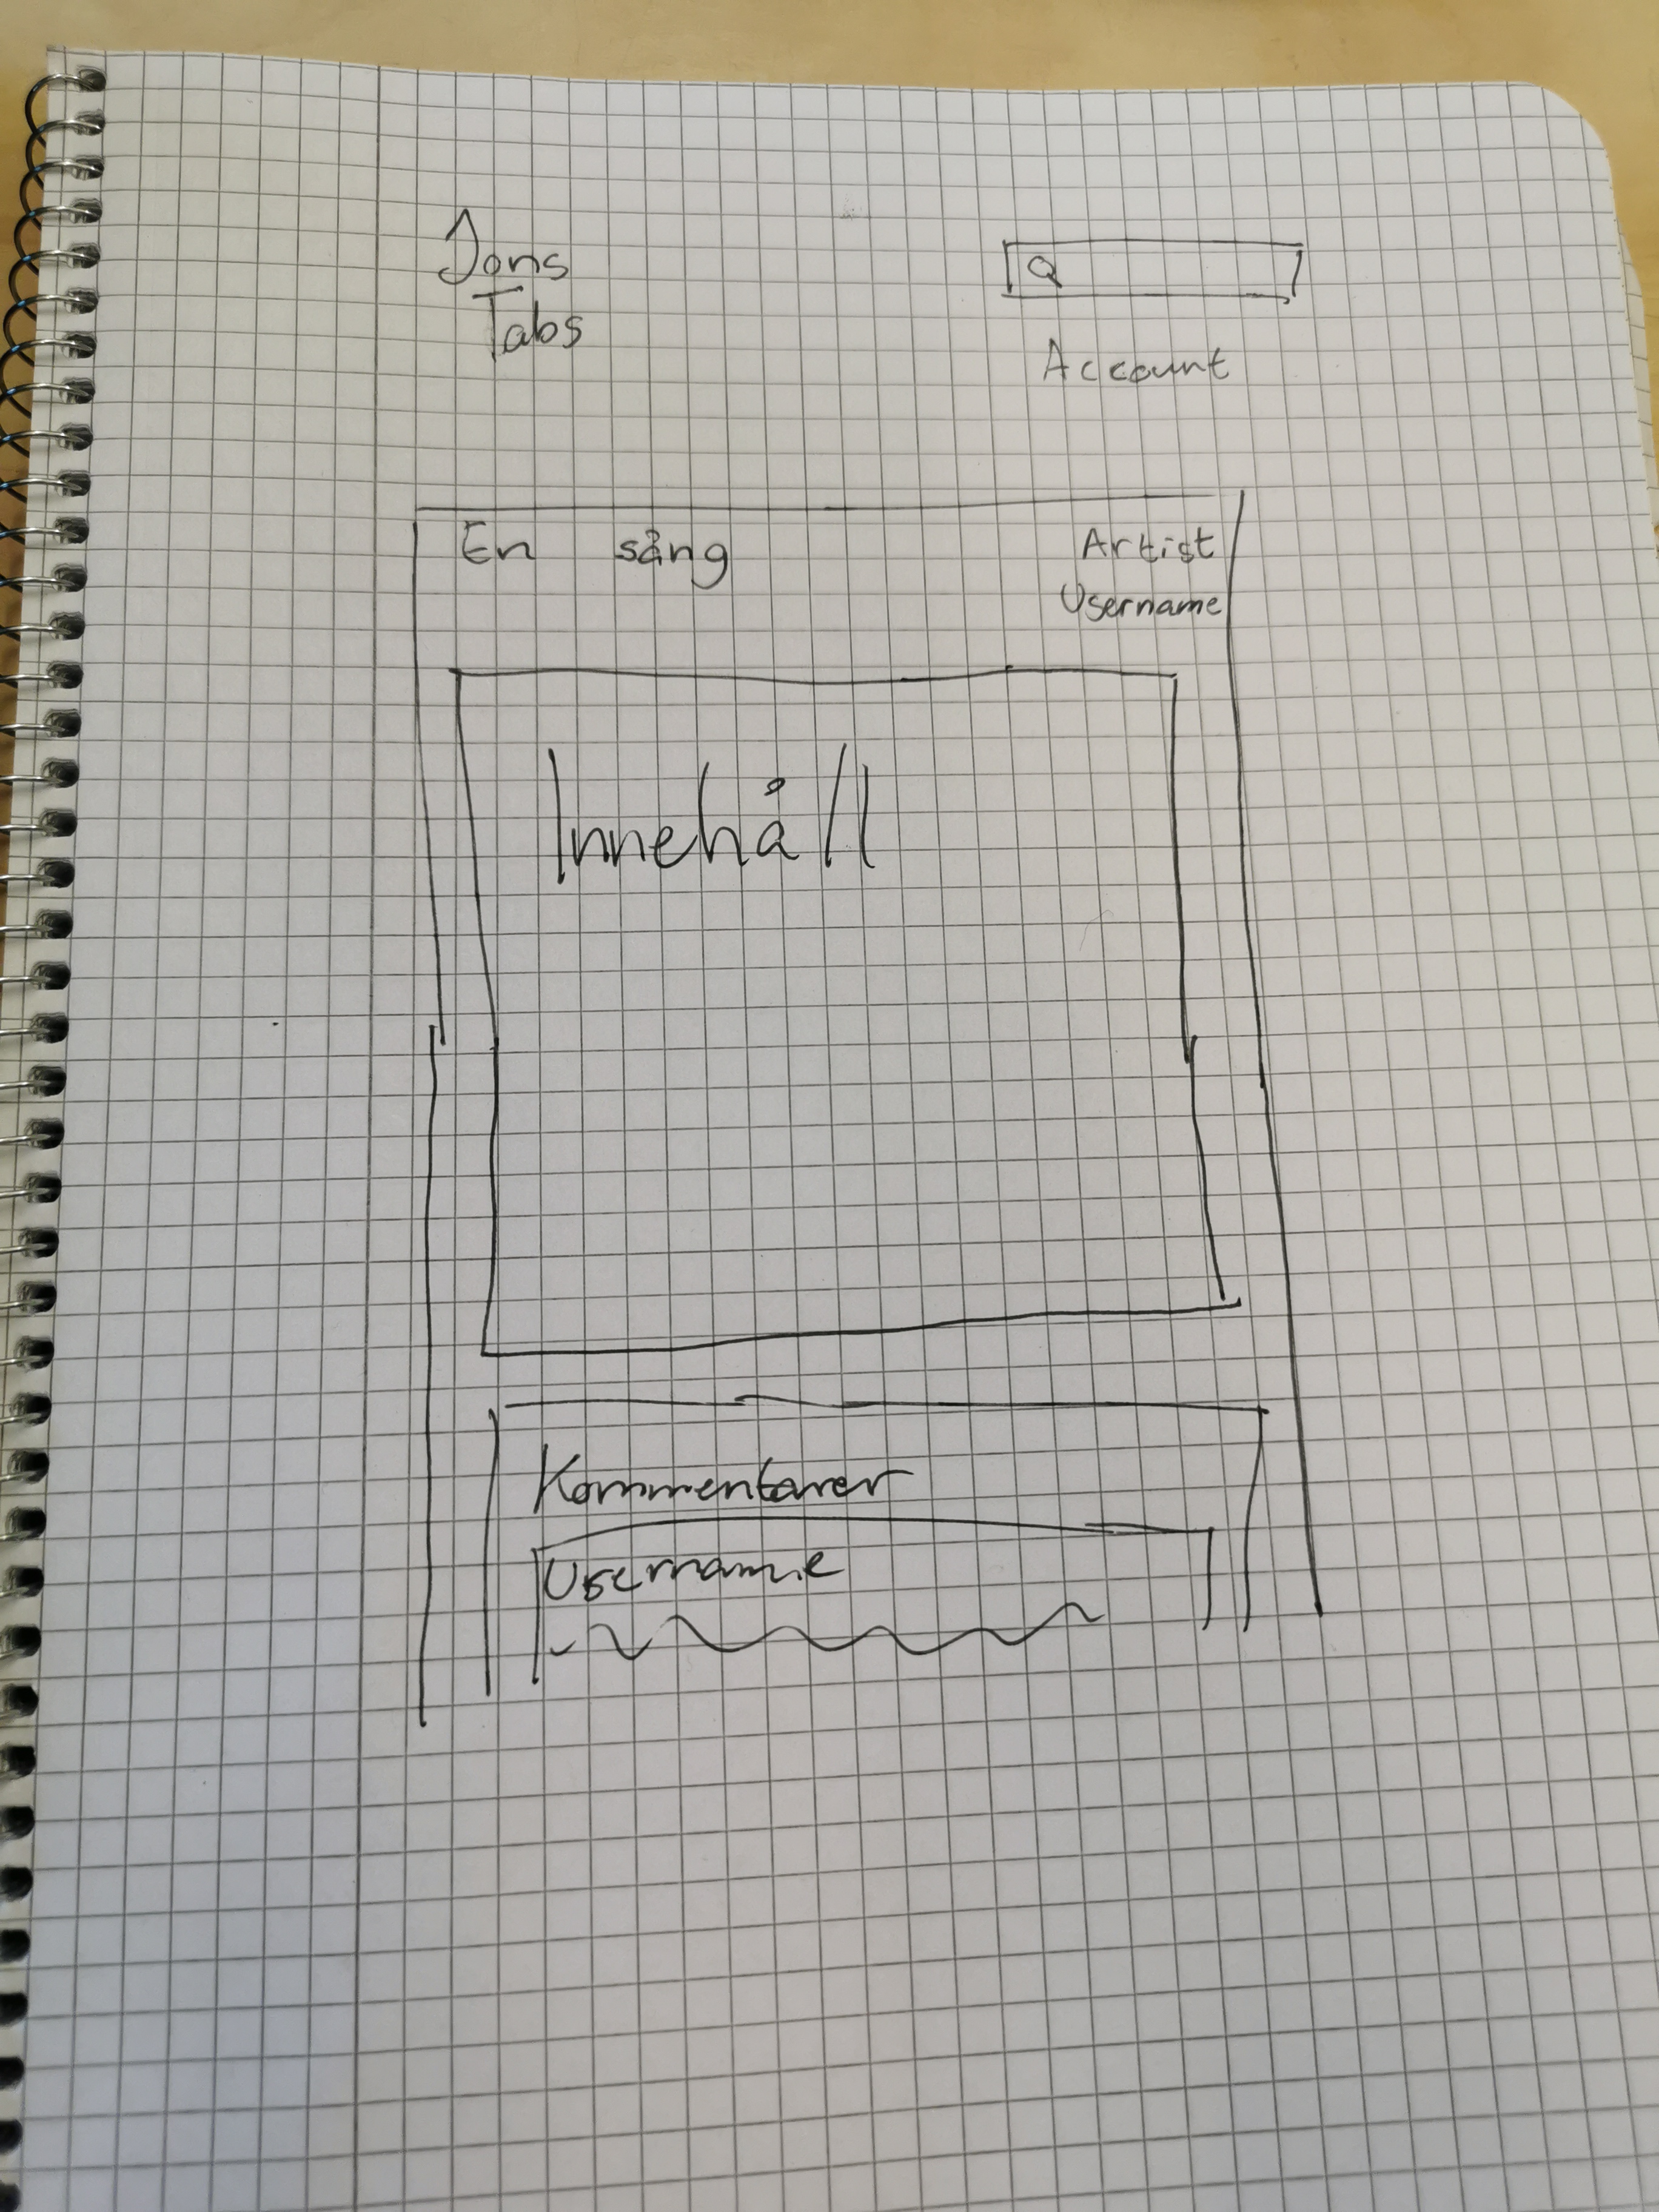 Jons
Tabs
Account
En sång
Artist
Username
Innehåll
Kommentarer
Username